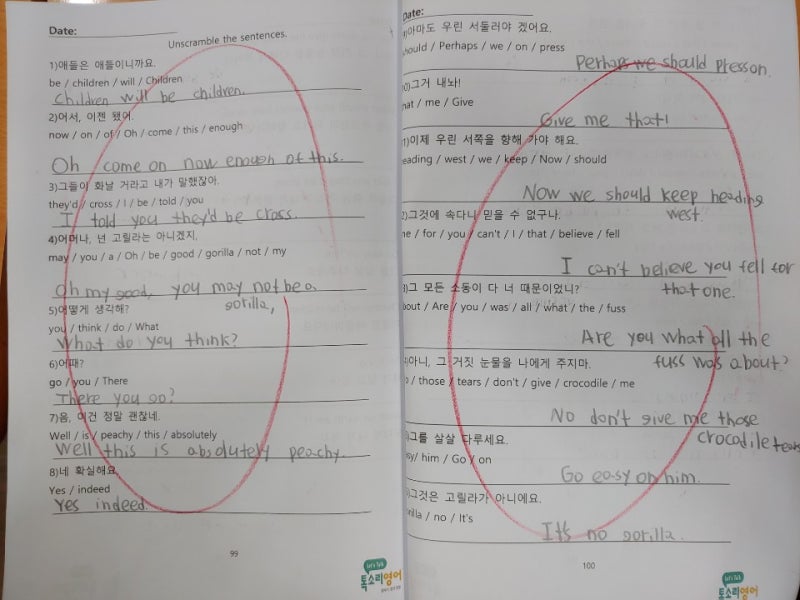 Date:
Unscramble the sentences.
1)애들은 애들이니까요.
be / children / will / Children
Children will be children.
2)어서, 이젠 됐어.
now / on / of / Oh / come / this / enough
Oh come on now enough of this.
3)그들이 화날 거라고 내가 말했잖아.
they'd / cross / I / be / told / you
I told you they'd be cross.
4)어머나, 넌 고릴라는 아니겠지.
may / you / a / Oh / be / good / gorilla / not / my
Oh my good, you may not be a
gorilla,
5)어떻게 생각해?
you / think / do / What
What do you think?
6)어때?
go / you / There
There you go?
7)음, 이건 정말 괜찮네.
Well / is / peachy / this / absolutely
Well this is absolutely peachy.
8)네 확실해요.
Yes / indeed
Yes indeed.
99
Let's Talk
톡소리영어
Date:
)아마도 우린 서둘러야 겠어요.
hould / Perhaps / we / on / press
Perhaps we should presson.
0)그거 내놔!
hat / me / Give
Give me that!
1)이제 우린 서쪽을 향해 가야 해요.
eading / west / we / keep / Now / should
Now we should keep heading
west.
2)그것에 속다니 믿을 수 없구나.
ne / for / you / can't / I / that / believe / fell
I can't believe you fell for
that one.
3)그 모든 소동이 다 너 때문이었니?
bout / Are / you / was / all / what / the / fuss
Are you what all the
fuss was about?
4)아니, 그 거짓 눈물을 나에게 주지마.
o / those / tears / don't / give / crocodile / me
No don't give me those
crocodile tears
)그를 살살 다루세요.
sy/ him / Go / on
Go easy on him.
)그것은 고릴라가 아니에요.
orilla / no / It's
It's no gorilla.
100
Let's Talk
톡소리영어